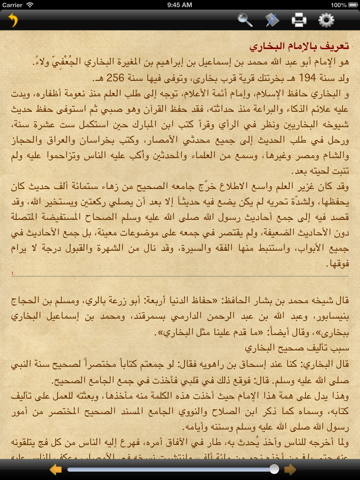 Carrier
9:45 AM
100%
تعريف بالإمام البخاري
هو الإمام أبو عبد الله محمد بن إسماعيل بن إبراهيم بن المغيرة البخاري الجُعْفِيّ ولاءً.
ولد سنة 194 هـ بخرتنك قرية قرب بخارى، وتوفى فيها سنة 256 هـ.
و البخاري حافظ الإسلام، وإمام أئمة الأعلام، توجه إلى طلب العلم منذ نعومة أظفاره، وبدت
عليه علائم الذكاء والبراعة منذ حداثته، فقد حفظ القرآن وهو صبي ثم استوفى حفظ حديث
شيوخه البخاريين ونظر في الرأي وقرأ كتب ابن المبارك حين استكمل ست عشرة سنة،
ورحل في طلب الحديث إلى جميع محدثي الأمصار، وكتب بخراسان والعراق والحجاز
والشام ومصر وغيرها، وسمع من العلماء والمحدثين وأكب عليه الناس وتزاحموا عليه ولم
تنبت لحيته بعد.
وقد كان غزير العلم واسع الاطلاع خرّج جامعه الصحيح من زهاء ستمائة ألف حديث كان
يحفظها، ولشدّة تحريه لم يكن يضع فيه حديثاً إلا بعد أن يصلي ركعتين ويستخير الله، وقد
قصد فيه إلى جمع أحاديث رسول الله صلى الله عليه وسلم الصحاح المستفيضة المتصلة
دون الأحاديث الضعيفة، ولم يقتصر في جمعه على موضوعات معينة، بل جمع الأحاديث في
جميع الأبواب، واستنبط منها الفقه والسيرة، وقد نال من الشهرة والقبول درجة لا يرام
فوقها.
قال شيخه محمد بن بشار الحافظ: «حفاظ الدنيا أربعة: أبو زرعة بالري، ومسلم بن الحجاج
بنيسابور، وعبد الله بن عبد الرحمن الدارمي بسمرقند، ومحمد بن إسماعيل البخاري
ببخارى»، وقال أيضاً: «ما قدم علينا مثل البخاري».
سبب تأليف صحيح البخاري
قال البخاري: كنا عند إسحاق بن راهويه فقال: لو جمعتم كتاباً مختصراً لصحيح سنة النبي
صلى الله عليه وسلم. قال: فوقع ذلك في قلبي فأخذت في جمع الجامع الصحيح.
وهذا يدل على همة هذا الإمام حيث أخذت هذه الكلمة منه مأخذها، وبعثته للعمل على تأليف
كتابه، وسماه كما ذكر ابن الصلاح والنووي الجامع المسند الصحيح المختصر من أمور
رسول الله صلى الله عليه وسلم وسننه وأيامه.
ولما أخرجه للناس وأخذ يُحدث به، طار في الآفاق أمره، فهرع إليه الناس من كل فج يتلقونه